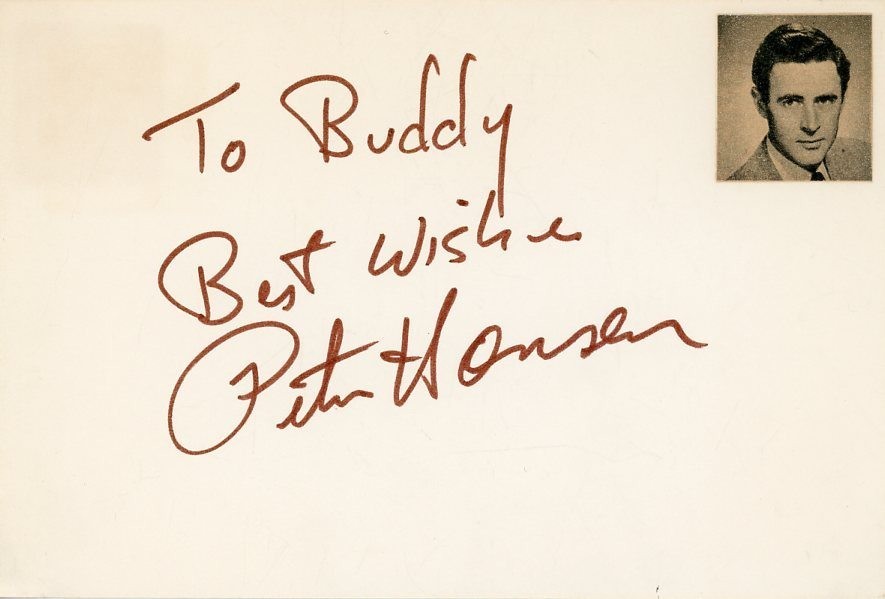 To Buddy
Best Wishes
Peter Hansen